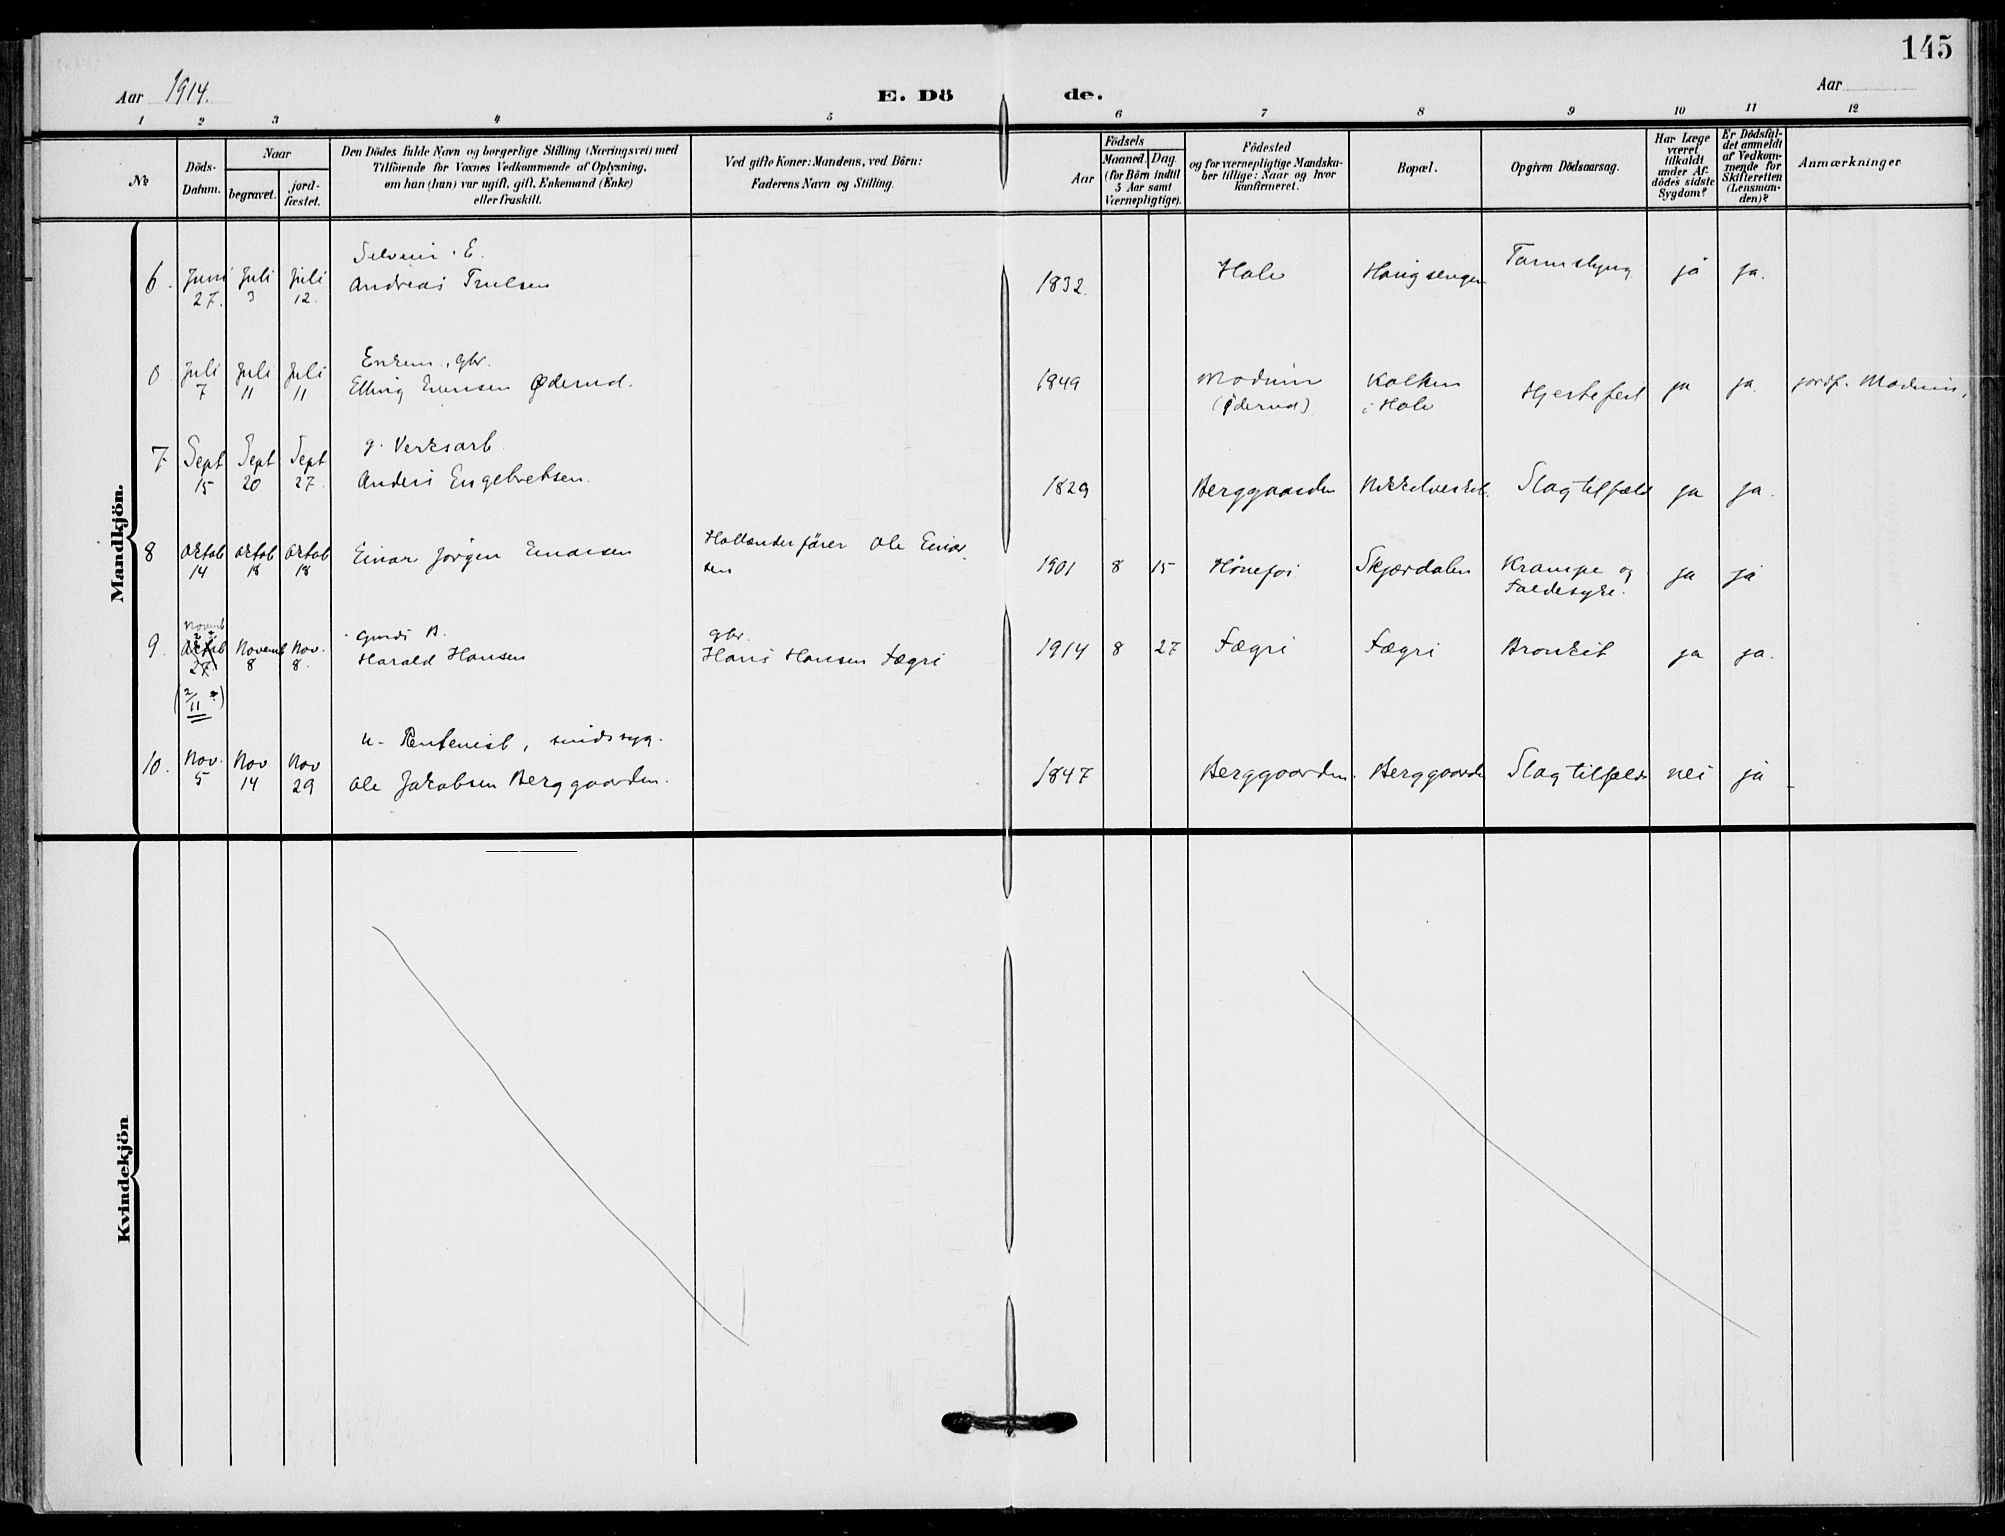 145
Aar 1914.
E. Dö de.
Aar
1 2 3 4 5 6 7 8 9 10 11 12
No
Döds-Datum.
Naar
begravet.
jord-fæstet.
Den Dödes fulde Navn og borgerlige Stilling (Næringsvei) med
Tilföiende for Voxnes Vedkommende af Oplysning,
om han (hun) var ugift, gift, Enkemand (Enke)
eller fraskilt.
Ved gifte Koner: Mandens, ved Börn:
Faderens Navn og Stilling.
Födsels
Aar
Maaned. Dag
(for Börn indtil
5 Aar samt
Værnepligtige).
Födested
og for værnepligtige Mandska-
ber tillige: Naar og hvor
konfirmeret.
Bopæl.
Opgiven Dödsaarsag.
Har Læge
været
tilkaldt
under Af-
dödes sidste
Sygdom?
Er Dödsfal-
det anmeldt
af Vedkom-
mende for
Skifteretten
(Lensman-
den)?
Anmærkninger
Mandkjön.
E.
6. Juni Juli Juli Andreas Trulsen 1832. Hole ja ja.
27. 3 12.
Enkem. gbr.
0 Juli Juli Juli Elling Øderud. 1849 Modum Hjertefeil ja ja. jordf. Modum.
7 11 11 (Øderud) i Hole
g. Verksarb.
7 Sept Sept Sept Anders Engebretsen. 1829 Berggaarden Slagtilfæld ja ja.
15 20 27
8 Oktob Oktob Oktob Einar Jørgen Einarsen Hollenderfører Ole Einar- 1901 8 15 Hønefos Skjærdalen Krampe og ja ja
14 18 18 sen Faldesyke.
Novemb
2
Gmds B. gbr.
9. Oktob Novemb Nov. Harald Hansen Hans Hansen Fægri 1914 8 27 Fægri Fægri Bronkit ja ja.
27. 8 8.
(2/11 *)
u. Rentenist, sindssyg.
10. Nov. Nov Nov Ole Jakobsen Berggaarden. 1847 Berggaarden. Berggaarden Slagtilfælde nei ja
5 14 29
Kvindekjön